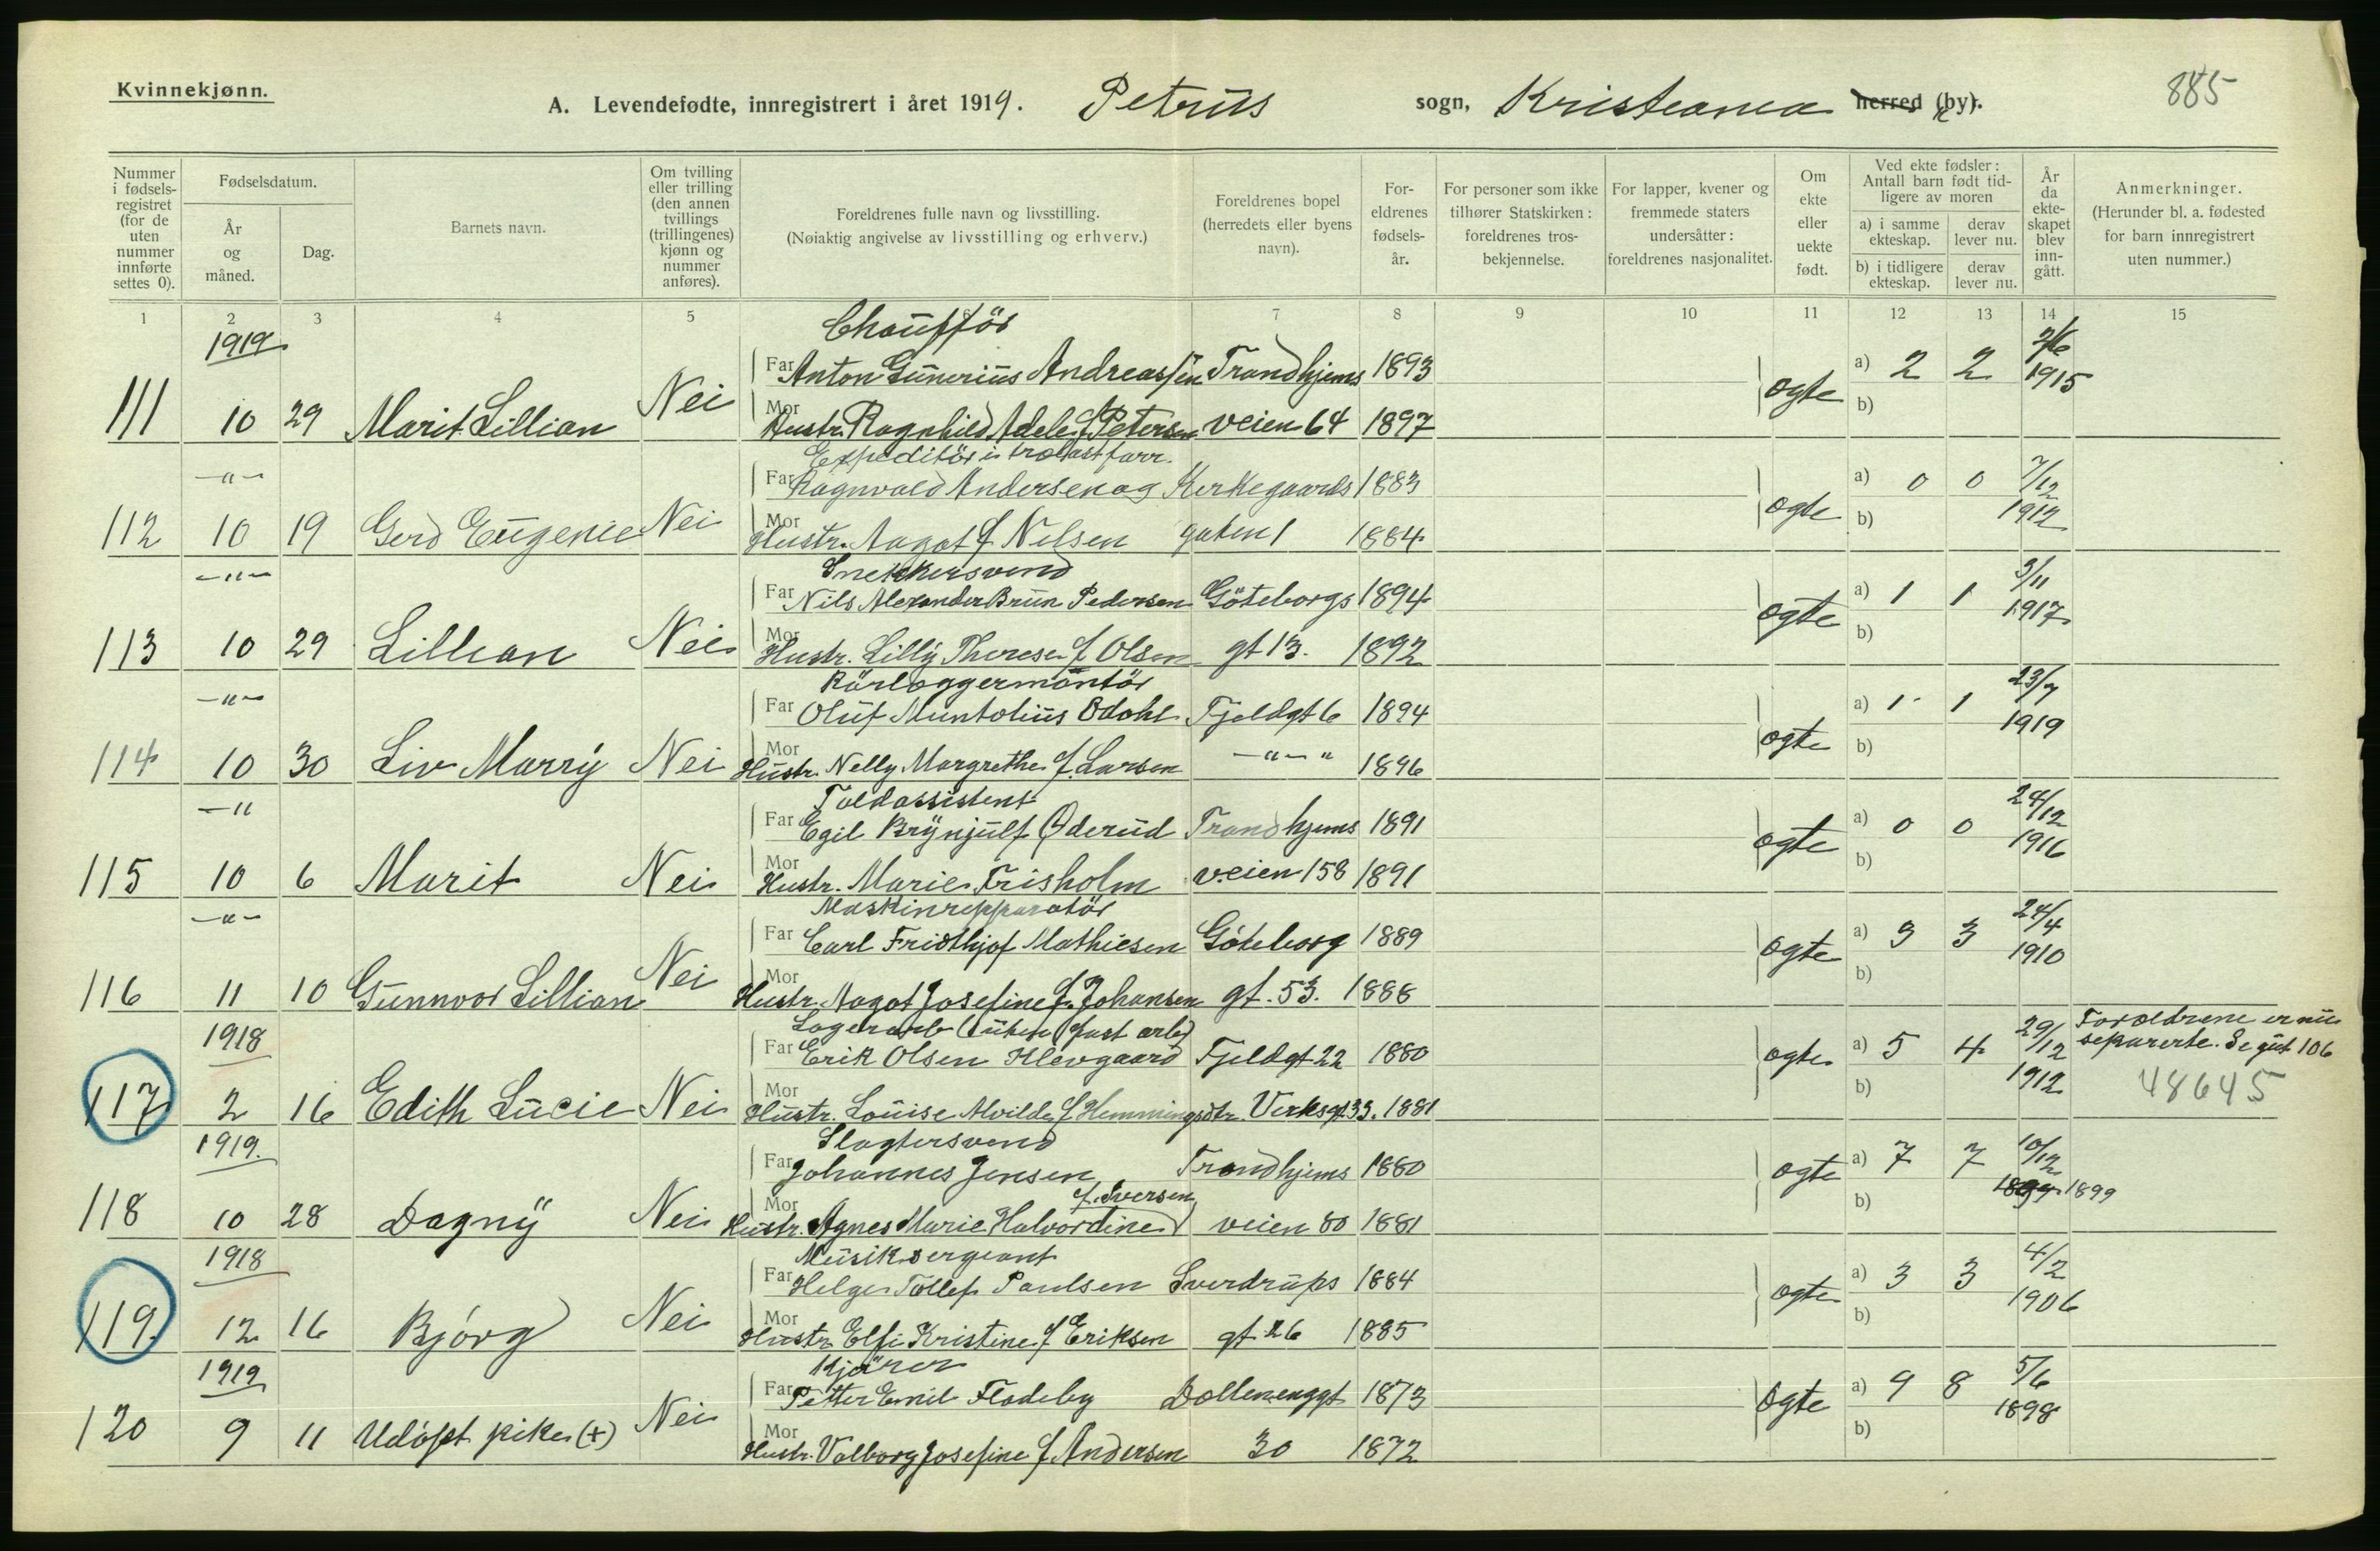 Kvinnekjønn.
A. Levendefødte, innregistrert i året 1919. Petrus sogn, Kristiania herred (by).
885
Nummer i fødselsregistret (for de uten nummer innførte settes 0).
Fødselsdatum.
År og måned.
Dag.
Barnets navn.
Om tvilling eller trilling (den annen tvillings (trillingenes) kjønn og nummer anføres).
Foreldrenes fulle navn og livsstilling.
(Nøiaktig angivelse av livsstilling og erhverv.)
Foreldrenes bopel (herredets eller byens navn).
Foreldrenes fødselsår.
For personer som ikke tilhører Statskirken: foreldrenes trosbekjennelse.
For lapper, kvener og fremmede staters undersåtter: foreldrenes nasjonalitet.
Om ekte eller uekte født.
Ved ekte fødsler: Antall barn født tidligere av moren
a) i samme ekteskap. derav lever nu.
b) i tidligere ekteskap. derav lever nu.
År da ekteskapet blev inngått.
Anmerkninger.
(Herunder bl. a. fødested for barn innregistrert uten nummer.)
1 2 3 4 5 6 7 8 9 10 11 12 13 14 15
1919 Chauffør
Far Anton Gunerius Andreassen Trondhjems 1893 a) 2 2 2/6 1915
111 10 29 Marit Lillian Nei Mor Hustr. Ragnhild Adele f. Petersen veien 64 1897 ægte b)
-"- Expeditör i
Far Ragnvald Andersen og Kirkegaards 1883 a) 0 0 7/12 1912
112 10 19 Gerd Eugenie Nei Mor Hustr. Aagot f Nilsen gaten 1 1884 ægte b)
-"- Snekkersvend
Far Nils Alexander Brun Pedersen Göteborgs 1894 a) 1 1 3/11 1917
113 10 29 Lillian Nei Mor Hustr. Lilly Therese f Olsen gt 13. 1892 ægte b)
-"- Rörleggermontör
Far Oluf Muntolius Odahl Fjeldgt 6 1894 a) 1 1 23/7 1919
114 10 30 Liv Marry Nei Mor Hustr. Nelly Margrethe f. Larsen -"- " 1896 ægte b)
-" Toldassistent
Far Egil Brynjulf Öderud Trondhjems 1891 a) 0 0 24/12 1916
115 10 6 Marit Nei Mor Hustr. Marie Frisholm veien 158 1891 ægte b)
-"- Maskinrepparatör
Far Carl Fridthjof Mathiesen Göteborg 1889 a) 3 3 24/4 1910
116 11 10 Gunnvor Lillian Nei Mor Hustr. Aagot Josefine f. Johansen gt. 53. 1888 ægte b)
1918 Lagerarb (uten fast arb)
Far Erik Olsen Klevgaard Fjeldgt 22 1880 a) 5 4 29/12 1912 Forældrene er nu separerte. Se gut 106
117 2 16 Edith Lucie Nei Mor Hustr. Louise Alvilde f Hemmingsdtr. Verksgt 33. 1881 ægte b) 48645
1919. Slagtersvend
Far Johannes Jensen Trondhjems 1880 a) 7 7 10/12 1899
118 10 28 Dagny Nei Mor Hustr. Agnes Marie Halvordine f. Iversen veien 80 1881 ægte b)
1918 Musiksergeant
Far Helge Tollef Paulsen Sverdrups 1884 a) 3 3 4/2 1906
119. 12 16 Bjórg Nei Mor Hustr Elfi Kristine f Eriksen gt. 26 1885 ægte b)
1919 Kjörer
Far Petter Emil Flodeby Dælenenggt 1873 a) 9 8 5/6 1898
120 9 11 Udöpt pike (+) Nei Mor Hustr. Valborg Josefine f. Andersen 30 1872 ægte b)